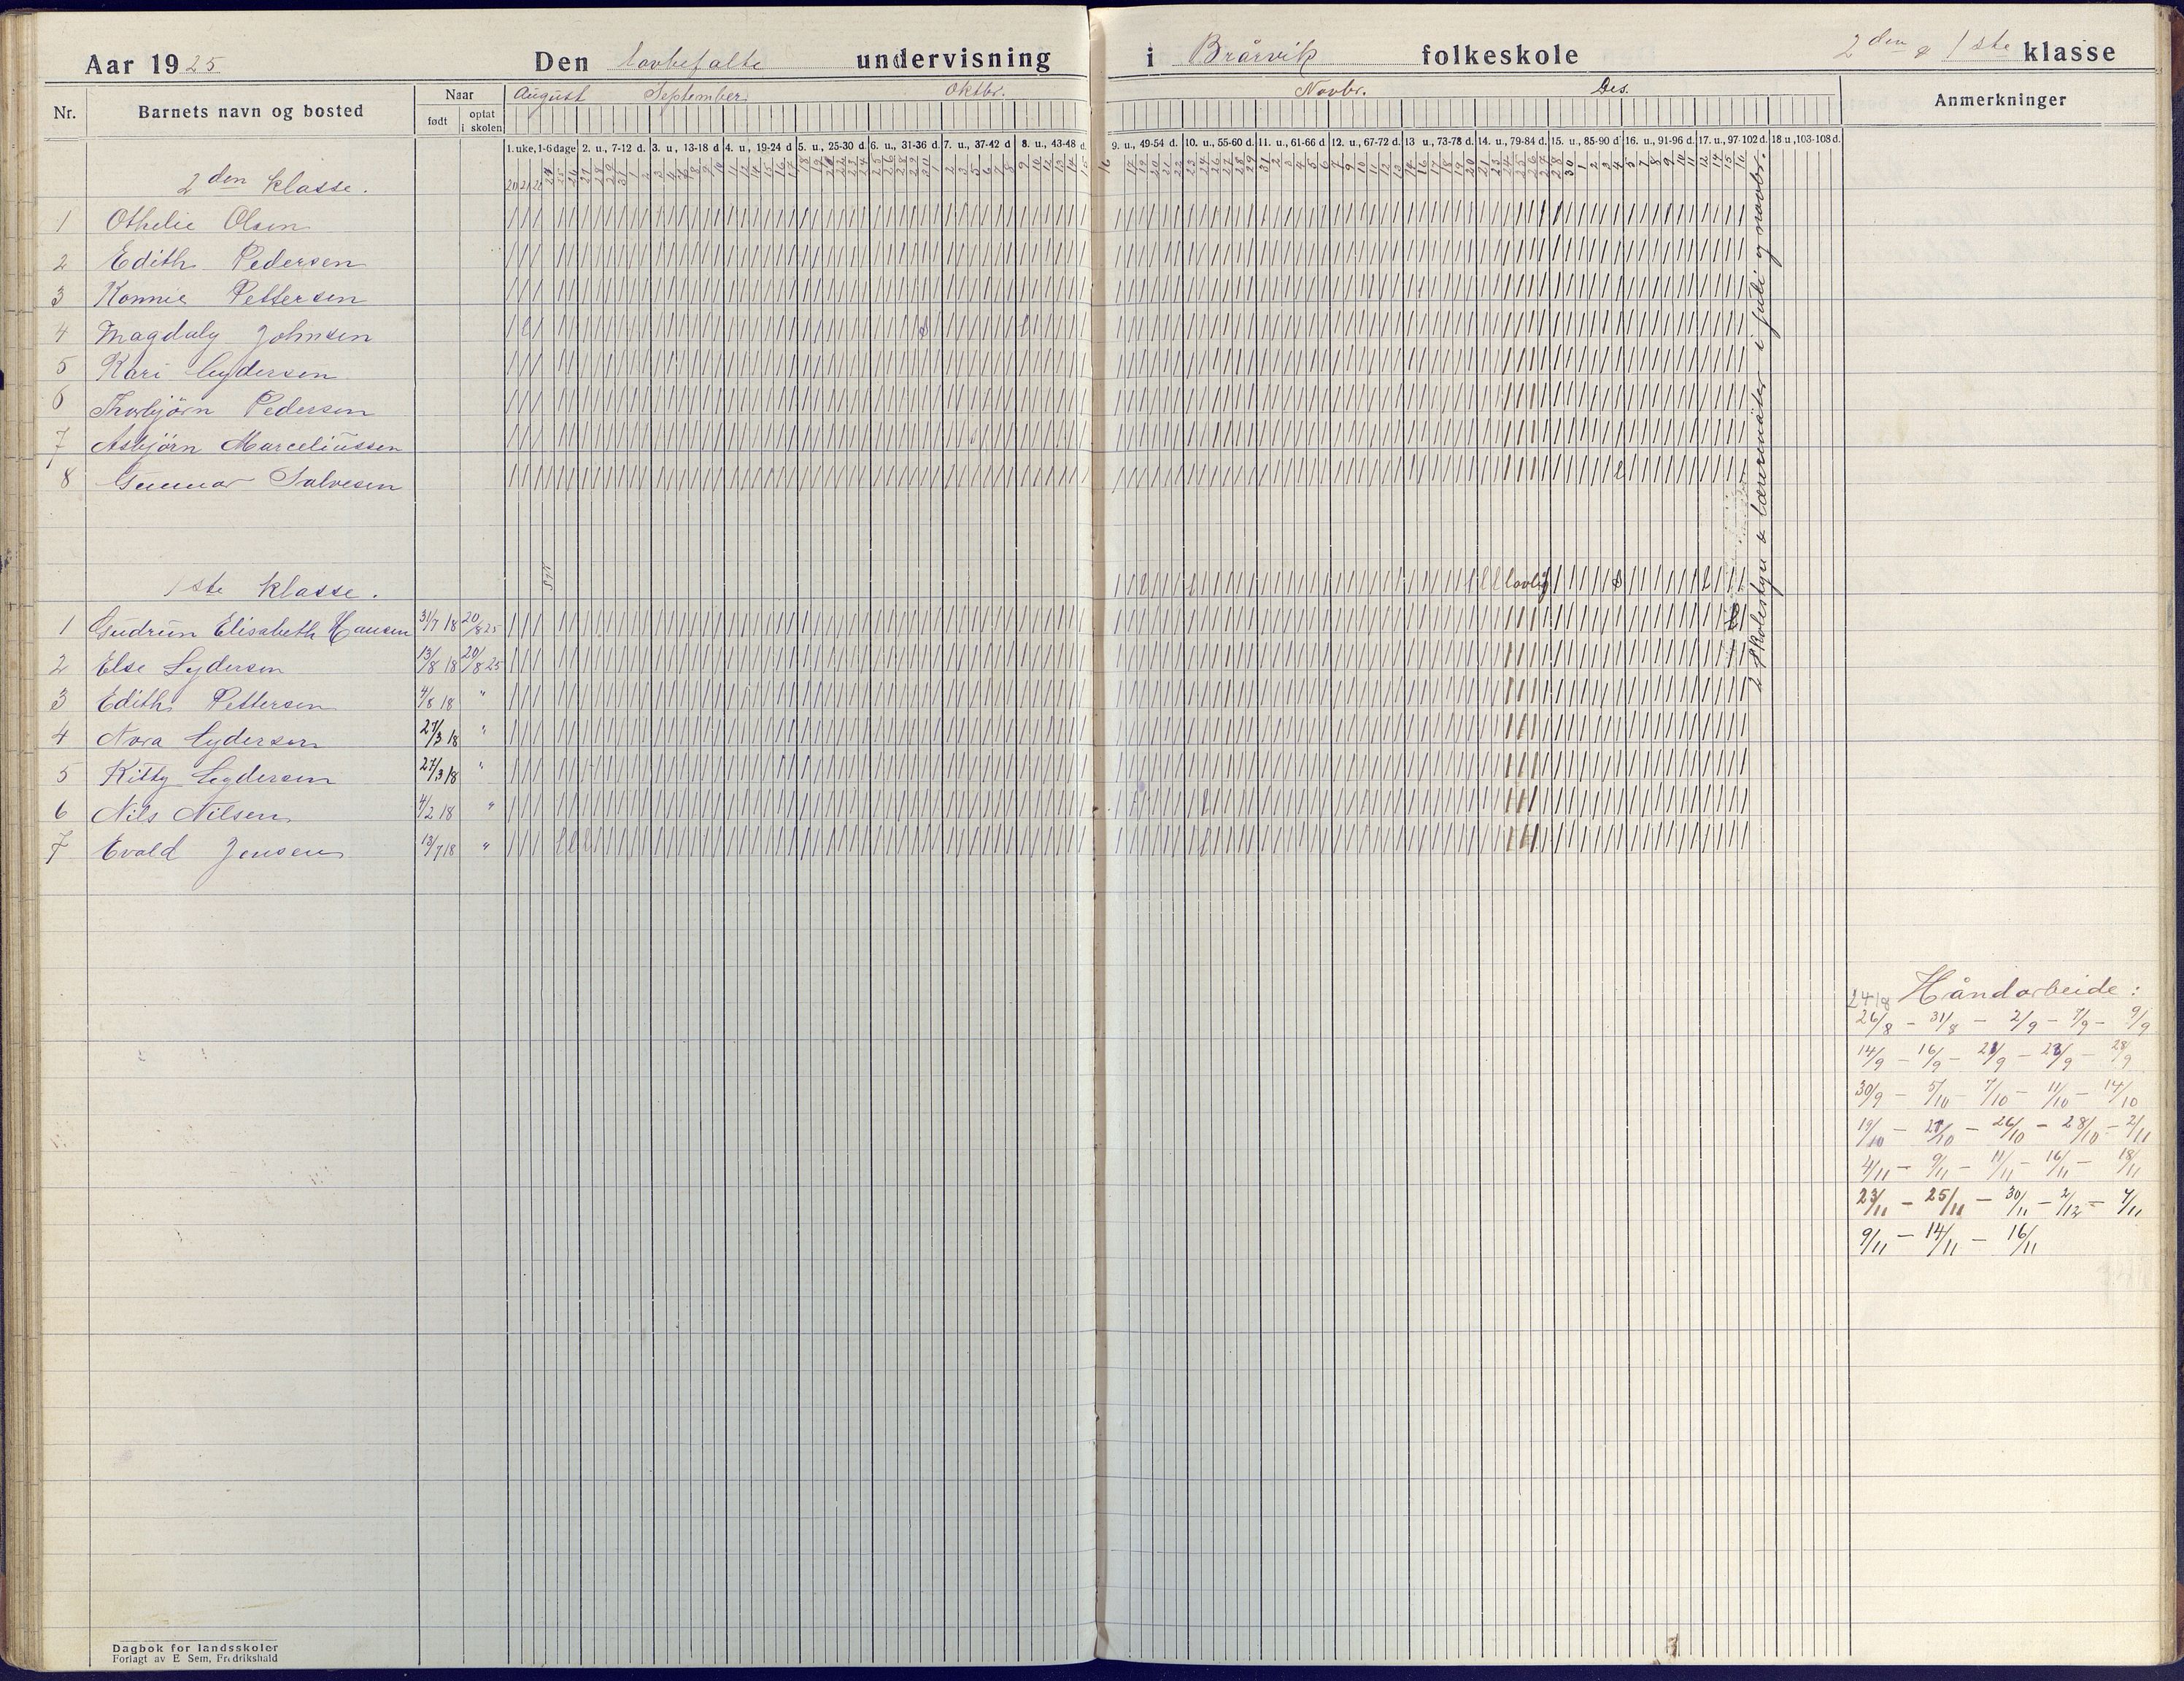 Aar 1925 Den lovbefalte undervisning i Brårvik folkeskole 2den & 1ste klasse
Nr. Barnets navn og bosted Naar August September Oktbr. Novbr. Des. Anmerkninger
født optat i skolen
1. uke, 1-6 dage 2. u., 7-12 d. 3. u, 13-18 d 4. u., 19-24 d 5. u., 25-30 d. 6. u., 31-36 d. 7. u., 37-42 d 8. u., 43-48 d. 9. u., 49-54 d. 10. u., 55-60 d. 11. u., 61-66 d 12. u., 67-72 d. 13 u., 73-78 d. 14. u., 79-84 d. 15. u., 85-90 d 16. u., 91-96 d. 17. u., 97-102 d. 18 u., 103-108 d.
2den klasse.
1 Othelie Olsen
2 Edith Pedersen
3 Konnie Pettersen
4 Magdaly Johnsen
5 Kari Lydersen
6 Thorbjörn Pedersen
7 Asbjörn Marceliussen
8 Gunnar Salvesen
2 skolestyre & lærermøter i juli og novbr.
1ste klasse.
syk
lovlig
1 Gudrun Elisabeth Hansen 31/7 18 20/8 25
2 Else Lydersen 13/8 18 20/8 25
3 Edith Pettersen 4/8 18 "
4 Nora Lydersen 27/3 18 "
5 Kitty Lydersen 27/3 18 "
6 Nils Nilsen 4/2 18 "
7 Evald Jensen 13/7 18 "
24/8 Håndarbeide:
26/8 - 31/8 - 2/9 - 7/9 - 9/9
14/9 - 16/9 - 21/9 - 23/9 - 28/9
30/9 - 5/10 - 7/10 - 11/10 - 14/10
19/10 - 21/10 - 26/10 - 28/10 - 2/11
4/11 - 9/11 - 11/11 - 16/11 - 18/11
23/11 - 25/11 - 30/11 - 2/12 - 7/11
9/11 - 14/11 - 16/11
Dagbok for landsskoler
Forlagt av E Sem, Fredrikshald